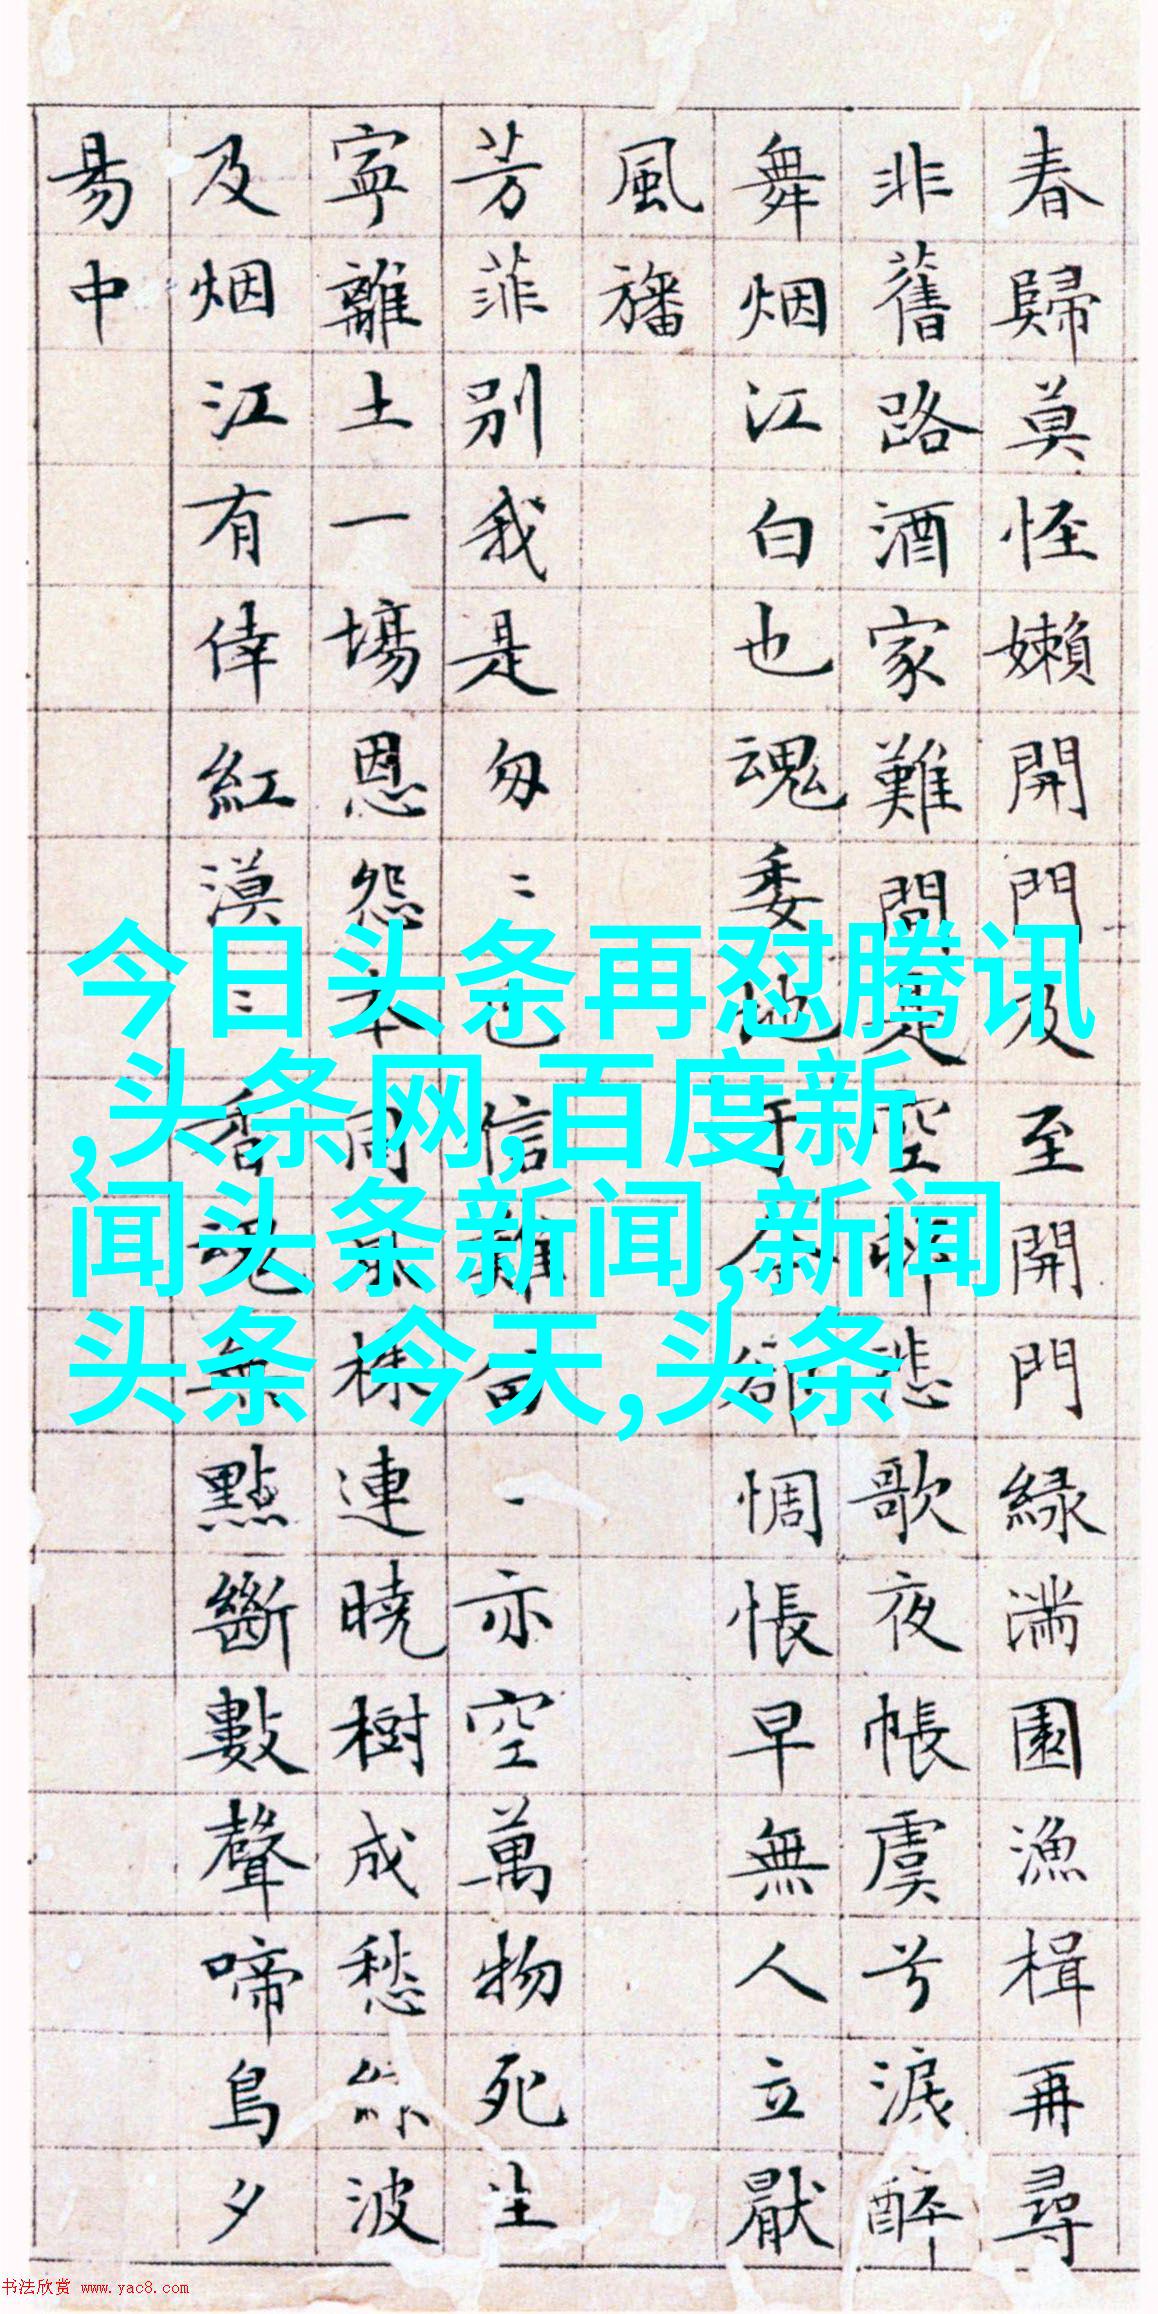 春歸莫怪嬾開門及至開門緑滿園漁楫再尋
非舊路酒家難問是空邨悲歌夜帳虞兮淚醉
舞烟江白也魂委地于今卻惆悵早無人立厭
風旛
芳菲別我是匆〻也信難留一亦空萬物死生
寧離土一場恩怨本同根株連曉樹成愁絲波
及烟江有倖紅漠〻香魂無點斷數聲啼鳥夕
易中
今日头条再怼腾讯
,头条网,百度新
闻头条新闻,新闻
头条 今天,头条
书法欣赏 www.yac8.com